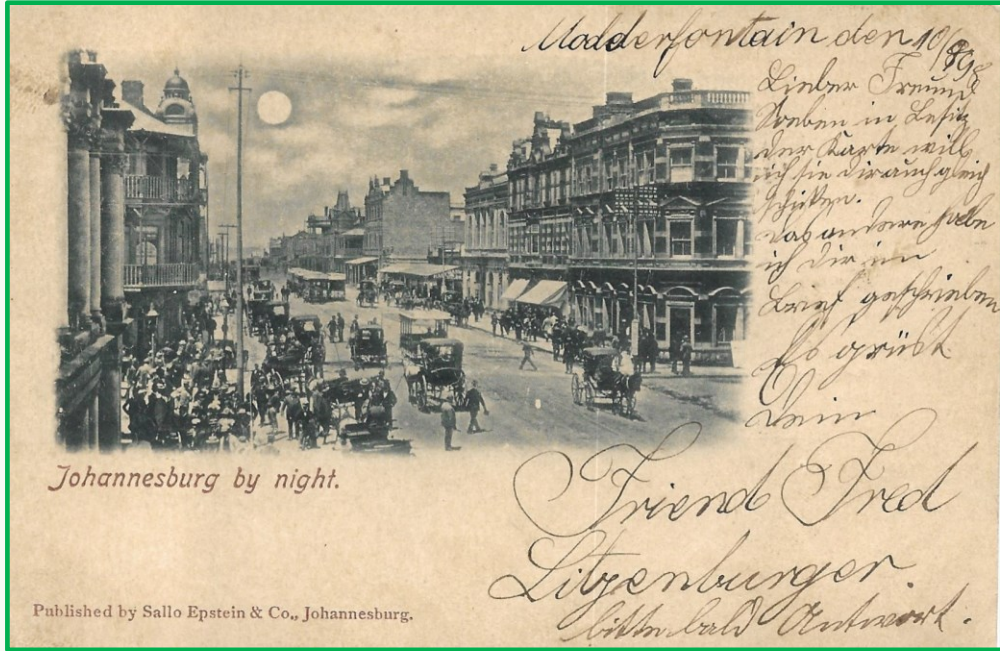 Modderfontain den 10/8 98
Lieber Freund
Soeben in Besitz
der Karte will
ich sie dir auch gleich
schicken.
das andere habe
ich dir im
Brief geschrieben
Es grüßt
Dein
Friend Fred
Litzenburger.
bitte bald Antwort.
Johannesburg by night.
Published by Sallo Epstein & Co., Johannesburg.